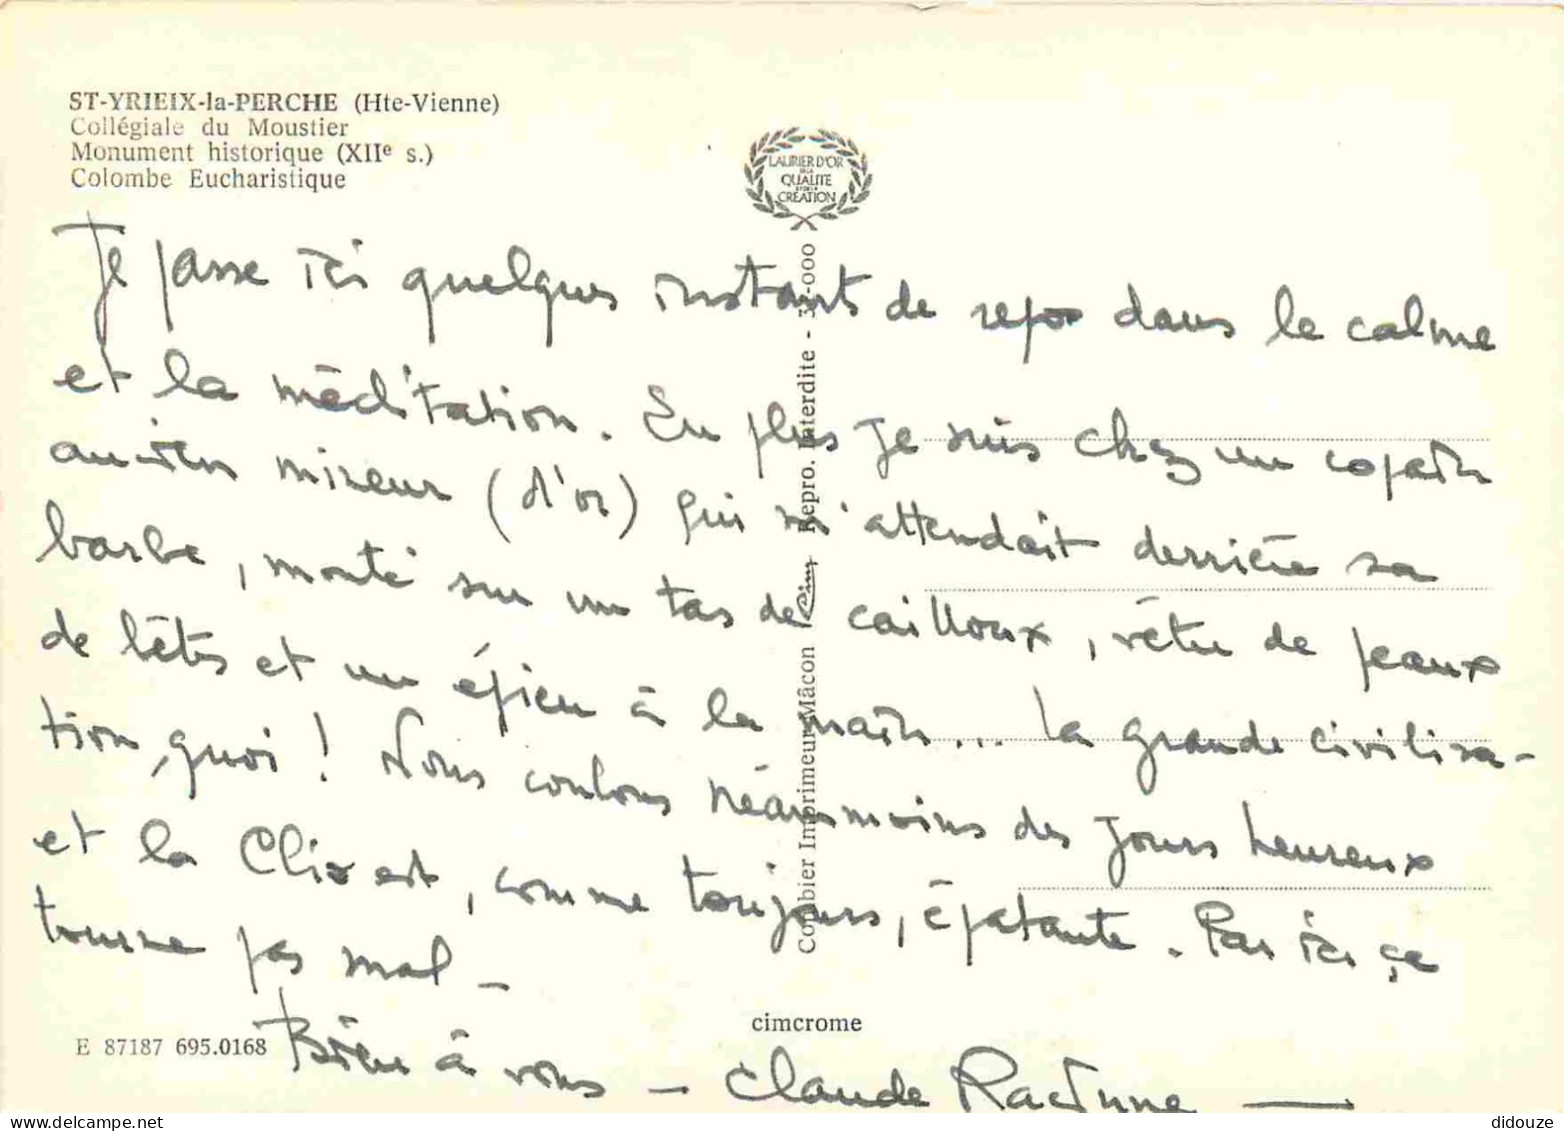 ST-YRIEIX-la-PERCHE (Hte-Vienne)
Collégiale du Moustier
Monument historique (XIIe s.)
Colombe Eucharistique
LAURIER D'OR
DE LA
QUALITE
ET DE LA
CREATION
Je passe ici quelques instants de repos dans le calme
et la méditation. En plus je suis chez un copain
ancien mineur (d'or) qui m'attendait derrière sa
barbe, monté sur un tas de cailloux, vêtu de peaux
de bêtes et un épieu à la main... La grande civilisa-
tion, quoi ! Nous coulons néanmoins des jours heureux
et la est, comme toujours, épatante. Par ici ça
tourne pas mal -
Bien à vous - Claude
Combier Imprimeur Mâcon Cim Repro. Interdite - 3 -000
cimcrome
E 87187 695.0168
didouze